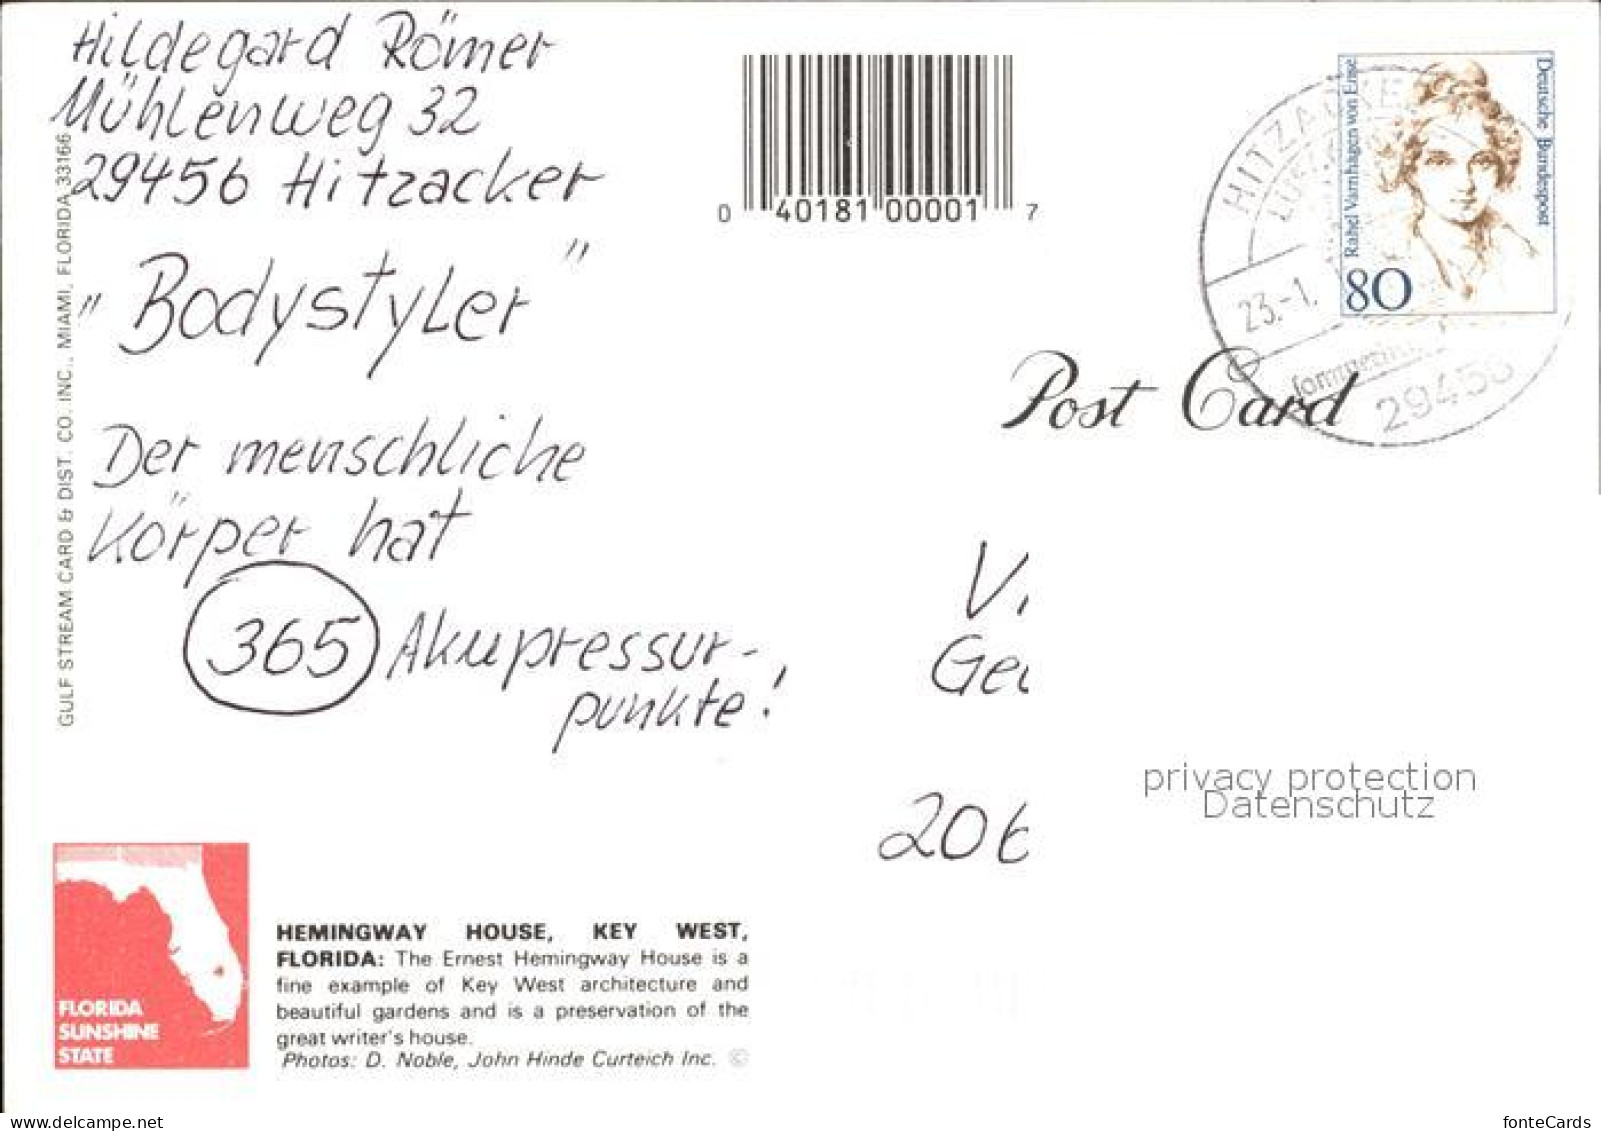 Hildegard Römer
Mühlenweg 32
29456 Hitzacker
„Bodystyler”
Der menschliche
Körper hat
365 Akupressur-
punkte!
GULF STREAM CARD & DIST. CO. INC., MIAMI, FLORIDA 33166
0 40181 00001 7
Deutsche Bundespost
Rahel Varnhagen von Ense
80
HITZACKER
23.-1.
29456
Post Card
206
privacy protection
Datenschutz
FLORIDA
SUNSHINE
STATE
HEMINGWAY HOUSE, KEY WEST,
FLORIDA: The Ernest Hemingway House is a
fine example of Key West architecture and
beautiful gardens and is a preservation of the
great writer's house.
Photos: D. Noble, John Hinde Curteich Inc. ©
www.delcampe.net
fonteCards